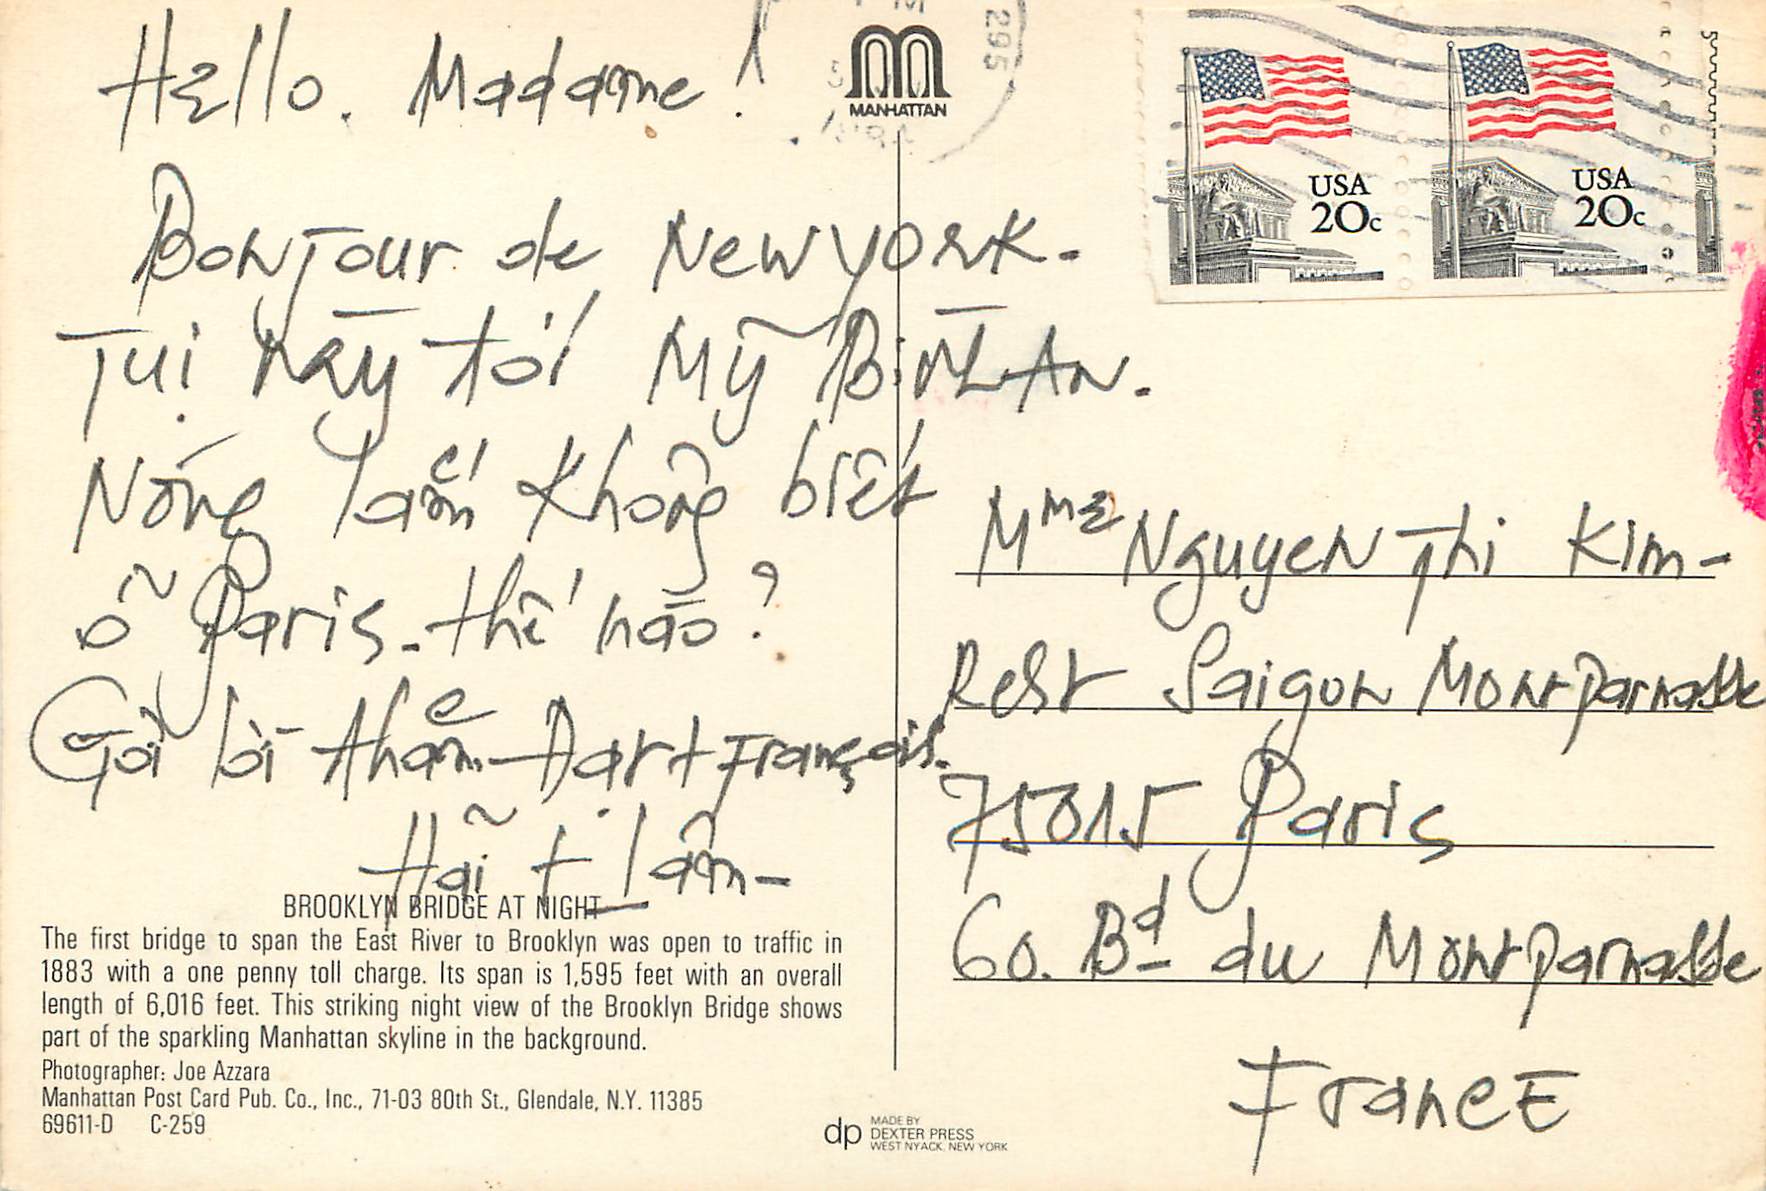 Hello. Madame !
Bonjour de New york.
Tụi này tới Mỹ Bình An.
Nóng lắm không biết
ở Paris thế nào ?
Gởi lời thăm François.
Hải + Lâm
BROOKLYN BRIDGE AT NIGHT
The first bridge to span the East River to Brooklyn was open to traffic in
1883 with a one penny toll charge. Its span is 1,595 feet with an overall
length of 6,016 feet. This striking night view of the Brooklyn Bridge shows
part of the sparkling Manhattan skyline in the background.
Photographer: Joe Azzara
Manhattan Post Card Pub. Co., Inc., 71-03 80th St., Glendale, N.Y. 11385
69611-D C-259
MANHATTAN
295
USA
20c
USA
20c
Mme Nguyen Thi Kim-
Rest Saigon Montparnasse
75015 Paris
60. Bd du Montparnasse
France
dp MADE BY
DEXTER PRESS
WEST NYACK, NEW YORK